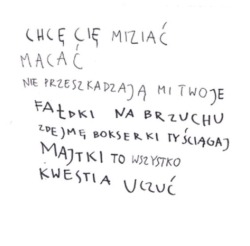 CHCĘ CIĘ MIZIAĆ
MACAĆ
NIE PRZESZKADZAJĄ MI TWOJE
FAŁDKI NA BRZUCHU
ZDEJMĘ BOKSERKI TY ŚCIĄGAJ
MAJTKI TO WSZYSTKO
KWESTIA UCZUĆ